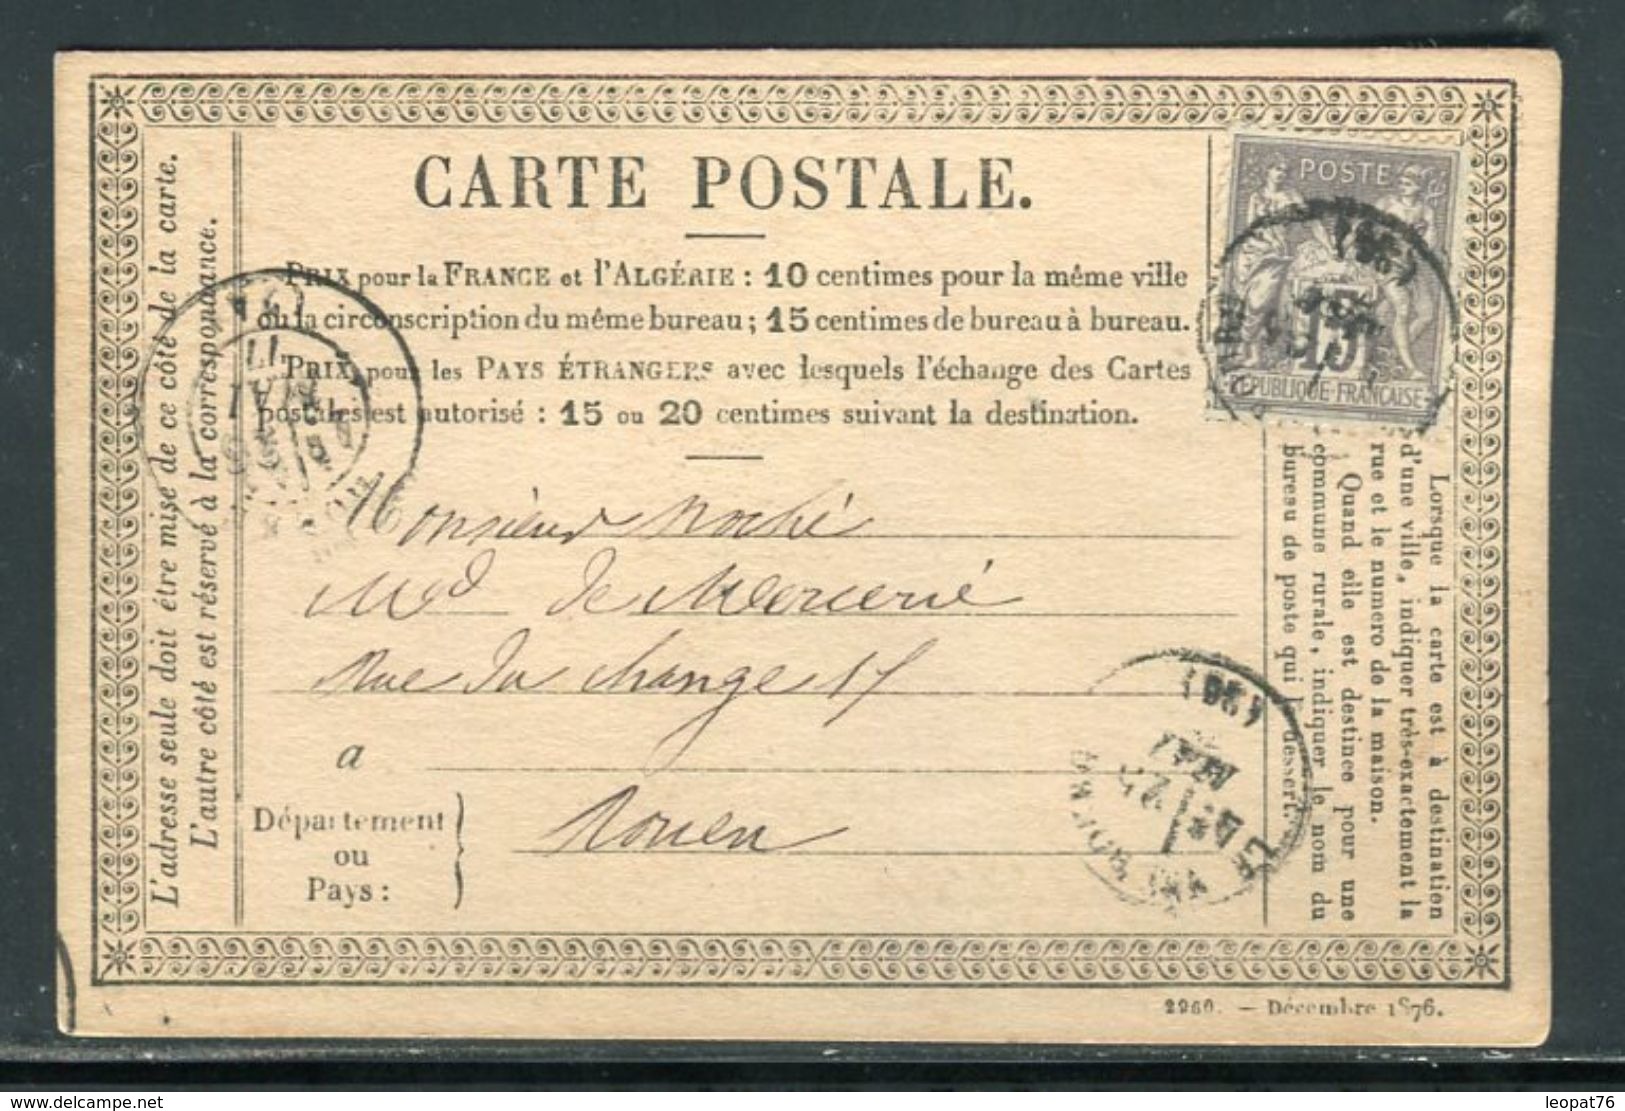 CARTE POSTALE.
PRIX pour la FRANCE et l'ALGÉRIE : 10 centimes pour la même ville
ou la circonscription du même bureau ; 15 centimes de bureau à bureau.
PRIX pour les PAYS ÉTRANGERS avec lesquels l'échange des Cartes
postales est autorisé : 15 ou 20 centimes suivant la destination.
L'adresse seule doit être mise de ce côté de la carte.
L'autre côté est réservé à la correspondance.
POSTE
15
RÉPUBLIQUE FRANÇAISE
(26)
Monsieur Roché
Md de Mercerie
Rue du Change 17
a
Rouen
Département
ou
Pays :
Lorsque la carte est à destination
d'une ville, indiquer très-exactement la
rue et le numero de la maison.
Quand elle est destinée pour une
commune rurale, indiquer le nom du
bureau de poste qui la dessert.
MAI
77
(26)
MAI
2260. — Décembre 1876.
delcampe.net
leopat76